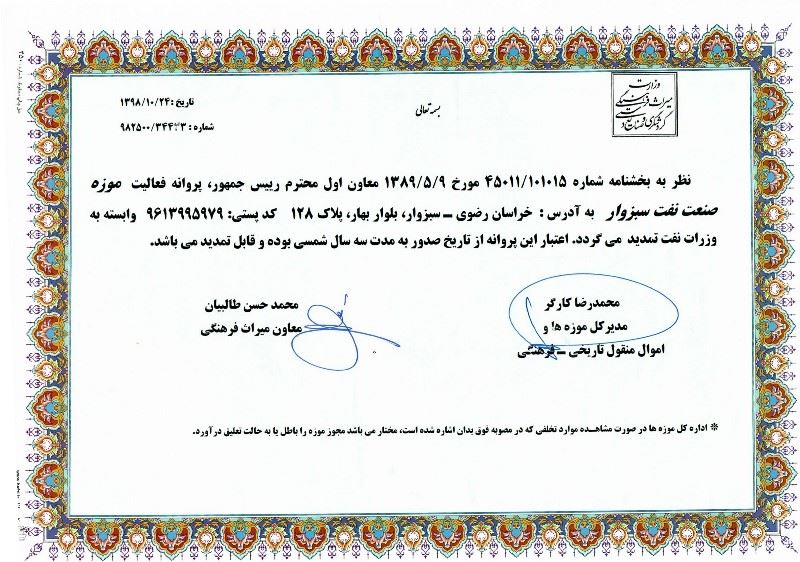 وزارت
میراث فرهنگی
گردشگری و صنایع دستی
بسمه تعالی
تاریخ : ۱۳۹۸/۱۰/۲۴
شماره : ۹۸۲۵۰۰/۳۴۴۳۳
نظر به بخشنامه شماره ۴۵۰۱۱/۱۰۱۰۱۵ مورخ ۱۳۸۹/۵/۹ معاون اول محترم رییس جمهور، پروانه فعالیت موزه
صنعت نفت سبزوار به آدرس : خراسان رضوی – سبزوار، بلوار بهار، پلاک ۱۲۸ کد پستی: ۹۶۱۳۹۹۵۹۷۹ وابسته به
وزرات نفت تمدید می گردد. اعتبار این پروانه از تاریخ صدور به مدت سه سال شمسی بوده و قابل تمدید می باشد.
محمدرضا کارگر
مدیرکل موزه ها و
اموال منقول تاریخی – فرهنگی
محمد حسن طالبیان
معاون میراث فرهنگی
* اداره کل موزه ها در صورت مشاهده موارد تخلفی که در مصوبه فوق بدان اشاره شده است، مختار می باشد مجوز موزه را باطل یا به حالت تعلیق درآورد.